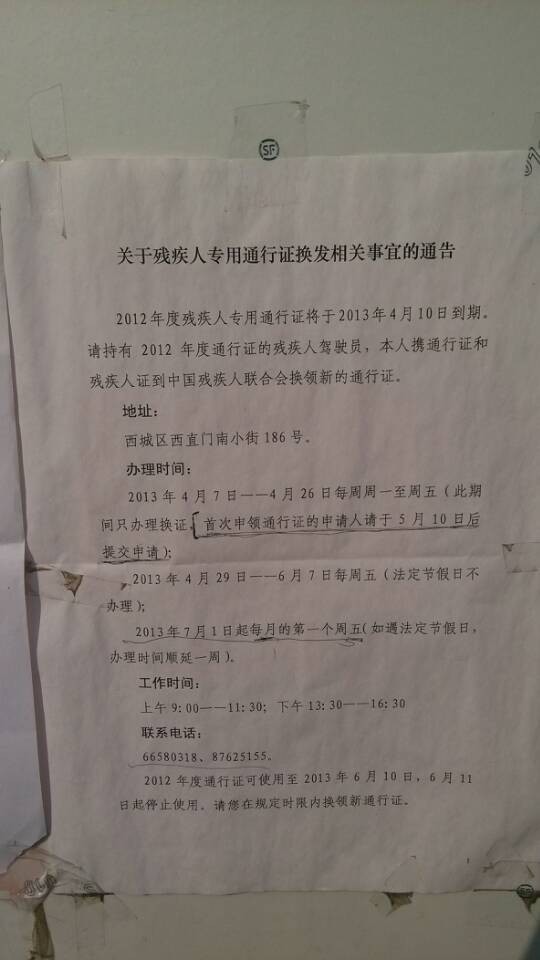 SF
关于残疾人专用通行证换发相关事宜的通告
2012年度残疾人专用通行证将于2013年4月10日到期。
请持有 2012 年度通行证的残疾人驾驶员，本人携通行证和
残疾人证到中国残疾人联合会换领新的通行证。
地址：
西城区西直门南小街 186 号。
办理时间：
2013 年 4 月 7 日——4 月 26 日每周周一至周五（此期
间只办理换证，首次申领通行证的申请人请于 5 月 10 日后
提交申请）；
2013 年 4 月 29 日——6 月 7 日每周五（法定节假日不
办理）；
2013 年 7 月 1 日起每月的第一个周五（如遇法定节假日，
办理时间顺延一周）。
工作时间：
上午 9：00——11：30；下午 13：30——16：30
联系电话：
66580318、87625155。
2012 年度通行证可使用至 2013 年 6 月 10 日，6 月 11
日起停止使用。请您在规定时限内换领新通行证。